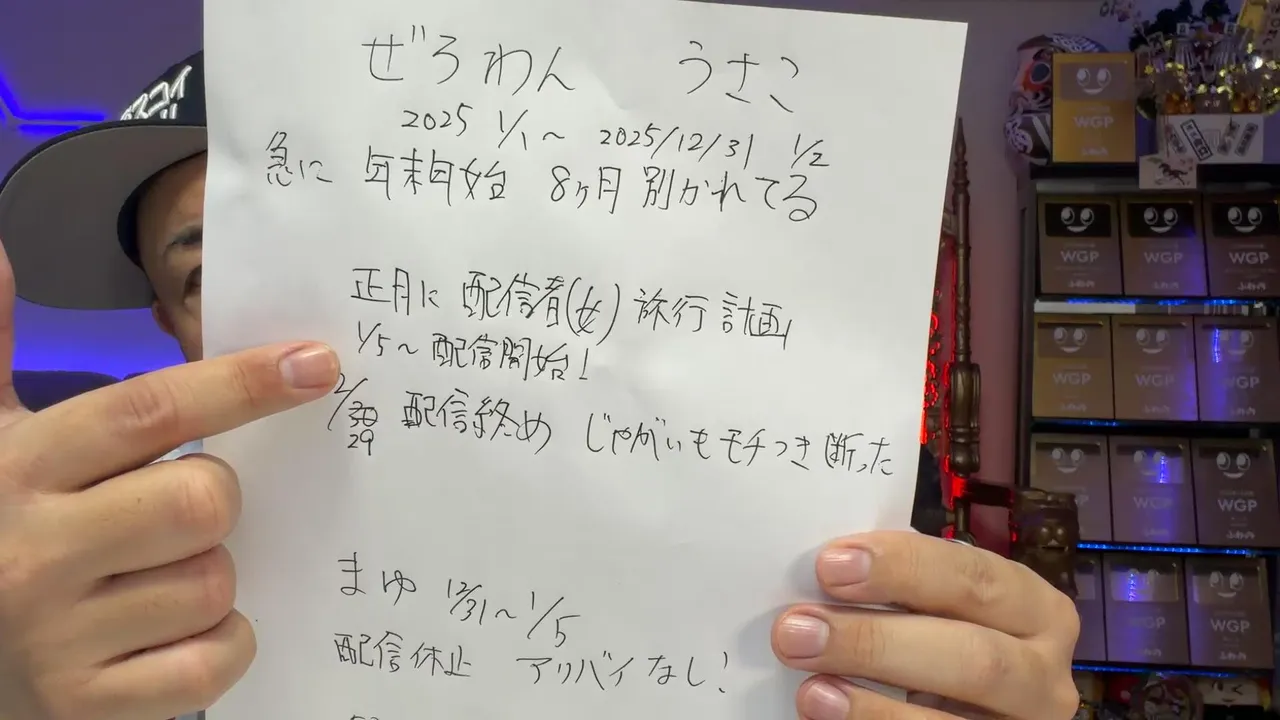 ぜろわん うさこ
2025 1/1〜 2025/12/31 1/2
急に 年末年始 8ヶ月 別かれてる
正月に 配信者(女) 旅行計画
1/5〜 配信開始!
2/30 配信終め じゃがいもモチつき断った
29
まゆ 12/31〜1/5
配信休止 アリバイなし!
WGP
WGP
WGP
WGP
WGP
WGP
WGP
WGP